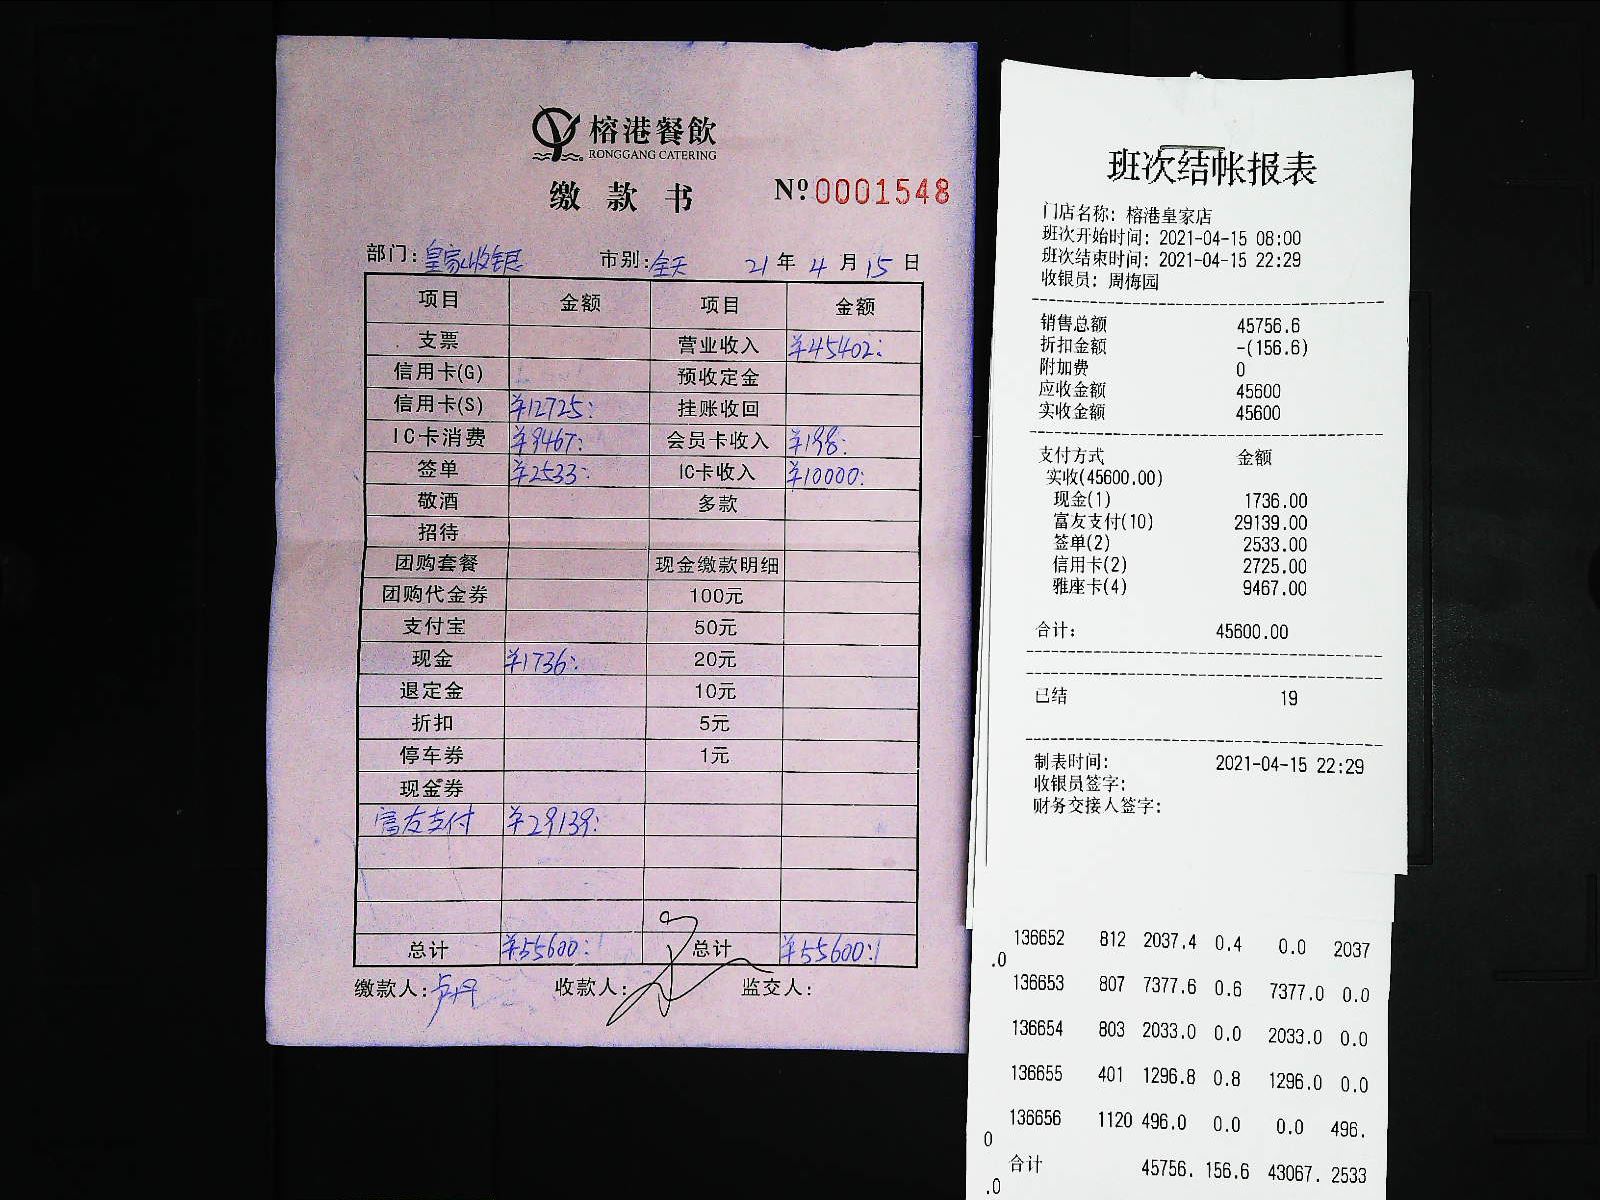 榕港餐飲
RONGGANG CATERING
缴款书 Nº 0001548
部门:皇家收银 市别:全天 21年4月15日
项目 金额 项目 金额
支票 营业收入 ¥45402:
信用卡(G) 预收定金
信用卡(S) ¥12725: 挂账收回
IC卡消费 ¥9467: 会员卡收入 ¥198:
签单 ¥2533: IC卡收入 ¥10000:
敬酒 多款
招待
团购套餐 现金缴款明细
团购代金券 100元
支付宝 50元
现金 ¥1736: 20元
退定金 10元
折扣 5元
停车券 1元
现金券
富友支付 ¥29139:
总计 ¥55600: 总计 ¥55600:
缴款人:卢丹 收款人: 监交人:
班次结帐报表
门店名称: 榕港皇家店
班次开始时间: 2021-04-15 08:00
班次结束时间: 2021-04-15 22:29
收银员: 周梅园
销售总额 45756.6
折扣金额 -(156.6)
附加费 0
应收金额 45600
实收金额 45600
支付方式 金额
实收(45600.00)
现金(1) 1736.00
富友支付(10) 29139.00
签单(2) 2533.00
信用卡(2) 2725.00
雅座卡(4) 9467.00
合计: 45600.00
已结 19
制表时间: 2021-04-15 22:29
收银员签字:
财务交接人签字:
136652 812 2037.4 0.4 0.0 2037
.0
136653 807 7377.6 0.6 7377.0 0.0
136654 803 2033.0 0.0 2033.0 0.0
136655 401 1296.8 0.8 1296.0 0.0
136656 1120 496.0 0.0 0.0 496.
0
合计 45756. 156.6 43067. 2533
.0